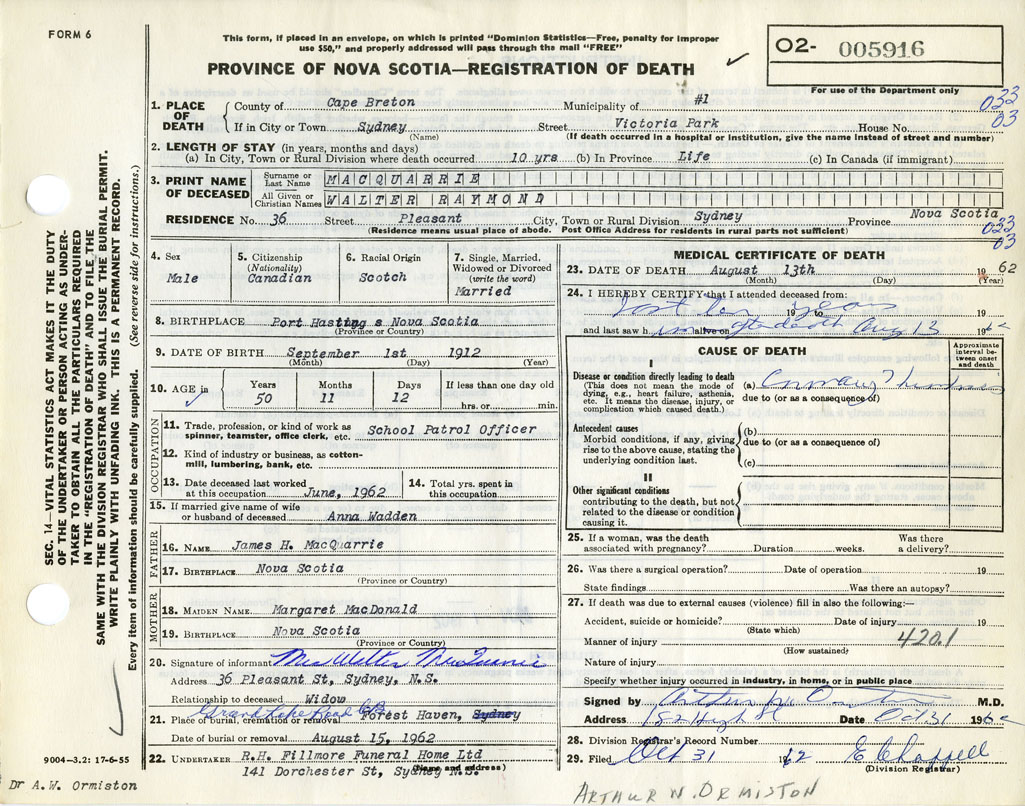 FORM 6
This form, if placed in an envelope, on which is printed "Dominion Statistics—Free, penalty for improper
use $50," and properly addressed will pass through the mail "FREE"
PROVINCE OF NOVA SCOTIA—REGISTRATION OF DEATH
02- 005916
For use of the Department only
1. PLACE OF DEATH
County of Cape Breton Municipality of #1
033
03
If in City or Town Sydney Street Victoria Park House No.
(Name) (If death occurred in a hospital or institution, give the name instead of street and number)
2. LENGTH OF STAY (in years, months and days)
(a) In City, Town or Rural Division where death occurred 10 yrs (b) In Province Life (c) In Canada (if immigrant)
3. PRINT NAME OF DECEASED
Surname or Last Name MACQUARRIE
All Given or Christian Names WALTER RAYMOND
RESIDENCE No. 36 Street Pleasant City, Town or Rural Division Sydney Province Nova Scotia
(Residence means usual place of abode. Post Office Address for residents in rural parts not sufficient)
033
03
4. Sex
Male
5. Citizenship
(Nationality)
Canadian
6. Racial Origin
Scotch
7. Single, Married, Widowed or Divorced
(write the word)
Married
8. BIRTHPLACE Port Hasting s Nova Scotia
(Province or Country)
9. DATE OF BIRTH September 1st 1912
(Month) (Day) (Year)
10. AGE in
Years Months Days If less than one day old
50 11 12 hrs. or min.
OCCUPATION
11. Trade, profession, or kind of work as School Patrol Officer
spinner, teamster, office clerk, etc.
12. Kind of industry or business, as cotton-
mill, lumbering, bank, etc.
13. Date deceased last worked
at this occupation June, 1962
14. Total yrs. spent in
this occupation
15. If married give name of wife
or husband of deceased Anna Wadden
FATHER
16. NAME James H. MacQuarrie
17. BIRTHPLACE Nova Scotia
(Province or Country)
MOTHER
18. MAIDEN NAME Margaret MacDonald
19. BIRTHPLACE Nova Scotia
(Province or Country)
20. Signature of informant Mrs Walter MacQuarrie
Address 36 Pleasant St, Sydney, N.S.
Relationship to deceased Widow
Grand Lake Road CB
21. Place of burial, cremation or removal Forest Haven, Sydney
Date of burial or removal August 15, 1962
22. UNDERTAKER R.H. Fillmore Funeral Home Ltd
141 Dorchester St, Sydney N.S.
(Name and address)
MEDICAL CERTIFICATE OF DEATH
23. DATE OF DEATH August 13th 1962
(Month) (Day) (Year)
24. I HEREBY CERTIFY that I attended deceased from:
years 19 to 19
and last saw h im alive on death Aug 13 1962
CAUSE OF DEATH
Approximate interval between onset and death
I
Disease or condition directly leading to death
(This does not mean the mode of
dying, e.g., heart failure, asthenia,
etc. It means the disease, injury, or
complication which caused death.)
(a) Coronary
due to (or as a consequence of)
Antecedent causes
Morbid conditions, if any, giving
rise to the above cause, stating the
underlying condition last.
(b)
due to (or as a consequence of)
(c)
II
Other significant conditions
contributing to the death, but not
related to the disease or condition
causing it.
25. If a woman, was the death
associated with pregnancy? Duration weeks. Was there
a delivery?
26. Was there a surgical operation? Date of operation 19
State findings Was there an autopsy?
27. If death was due to external causes (violence) fill in also the following:—
Accident, suicide or homicide? Date of injury 19
(State which)
Manner of injury 420.1
(How sustained)
Nature of injury
Specify whether injury occurred in industry, in home, or in public place
Signed by M.D.
Address 182 High St Date Oct 31 1962
28. Division Registrar's Record Number
29. Filed Oct 31 1962 E Chappell
(Division Registrar)
SEC. 14—VITAL STATISTICS ACT MAKES IT THE DUTY
OF THE UNDERTAKER OR PERSON ACTING AS UNDER-
TAKER TO OBTAIN ALL THE PARTICULARS REQUIRED
IN THE "REGISTRATION OF DEATH" AND TO FILE THE
SAME WITH THE DIVISION REGISTRAR WHO SHALL ISSUE THE BURIAL PERMIT.
WRITE PLAINLY WITH UNFADING INK. THIS IS A PERMANENT RECORD.
Every item of information should be carefully supplied. (See reverse side for instructions.)
9004-3.2: 17-6-55
Dr A.W. Ormiston
ARTHUR W. ORMISTON